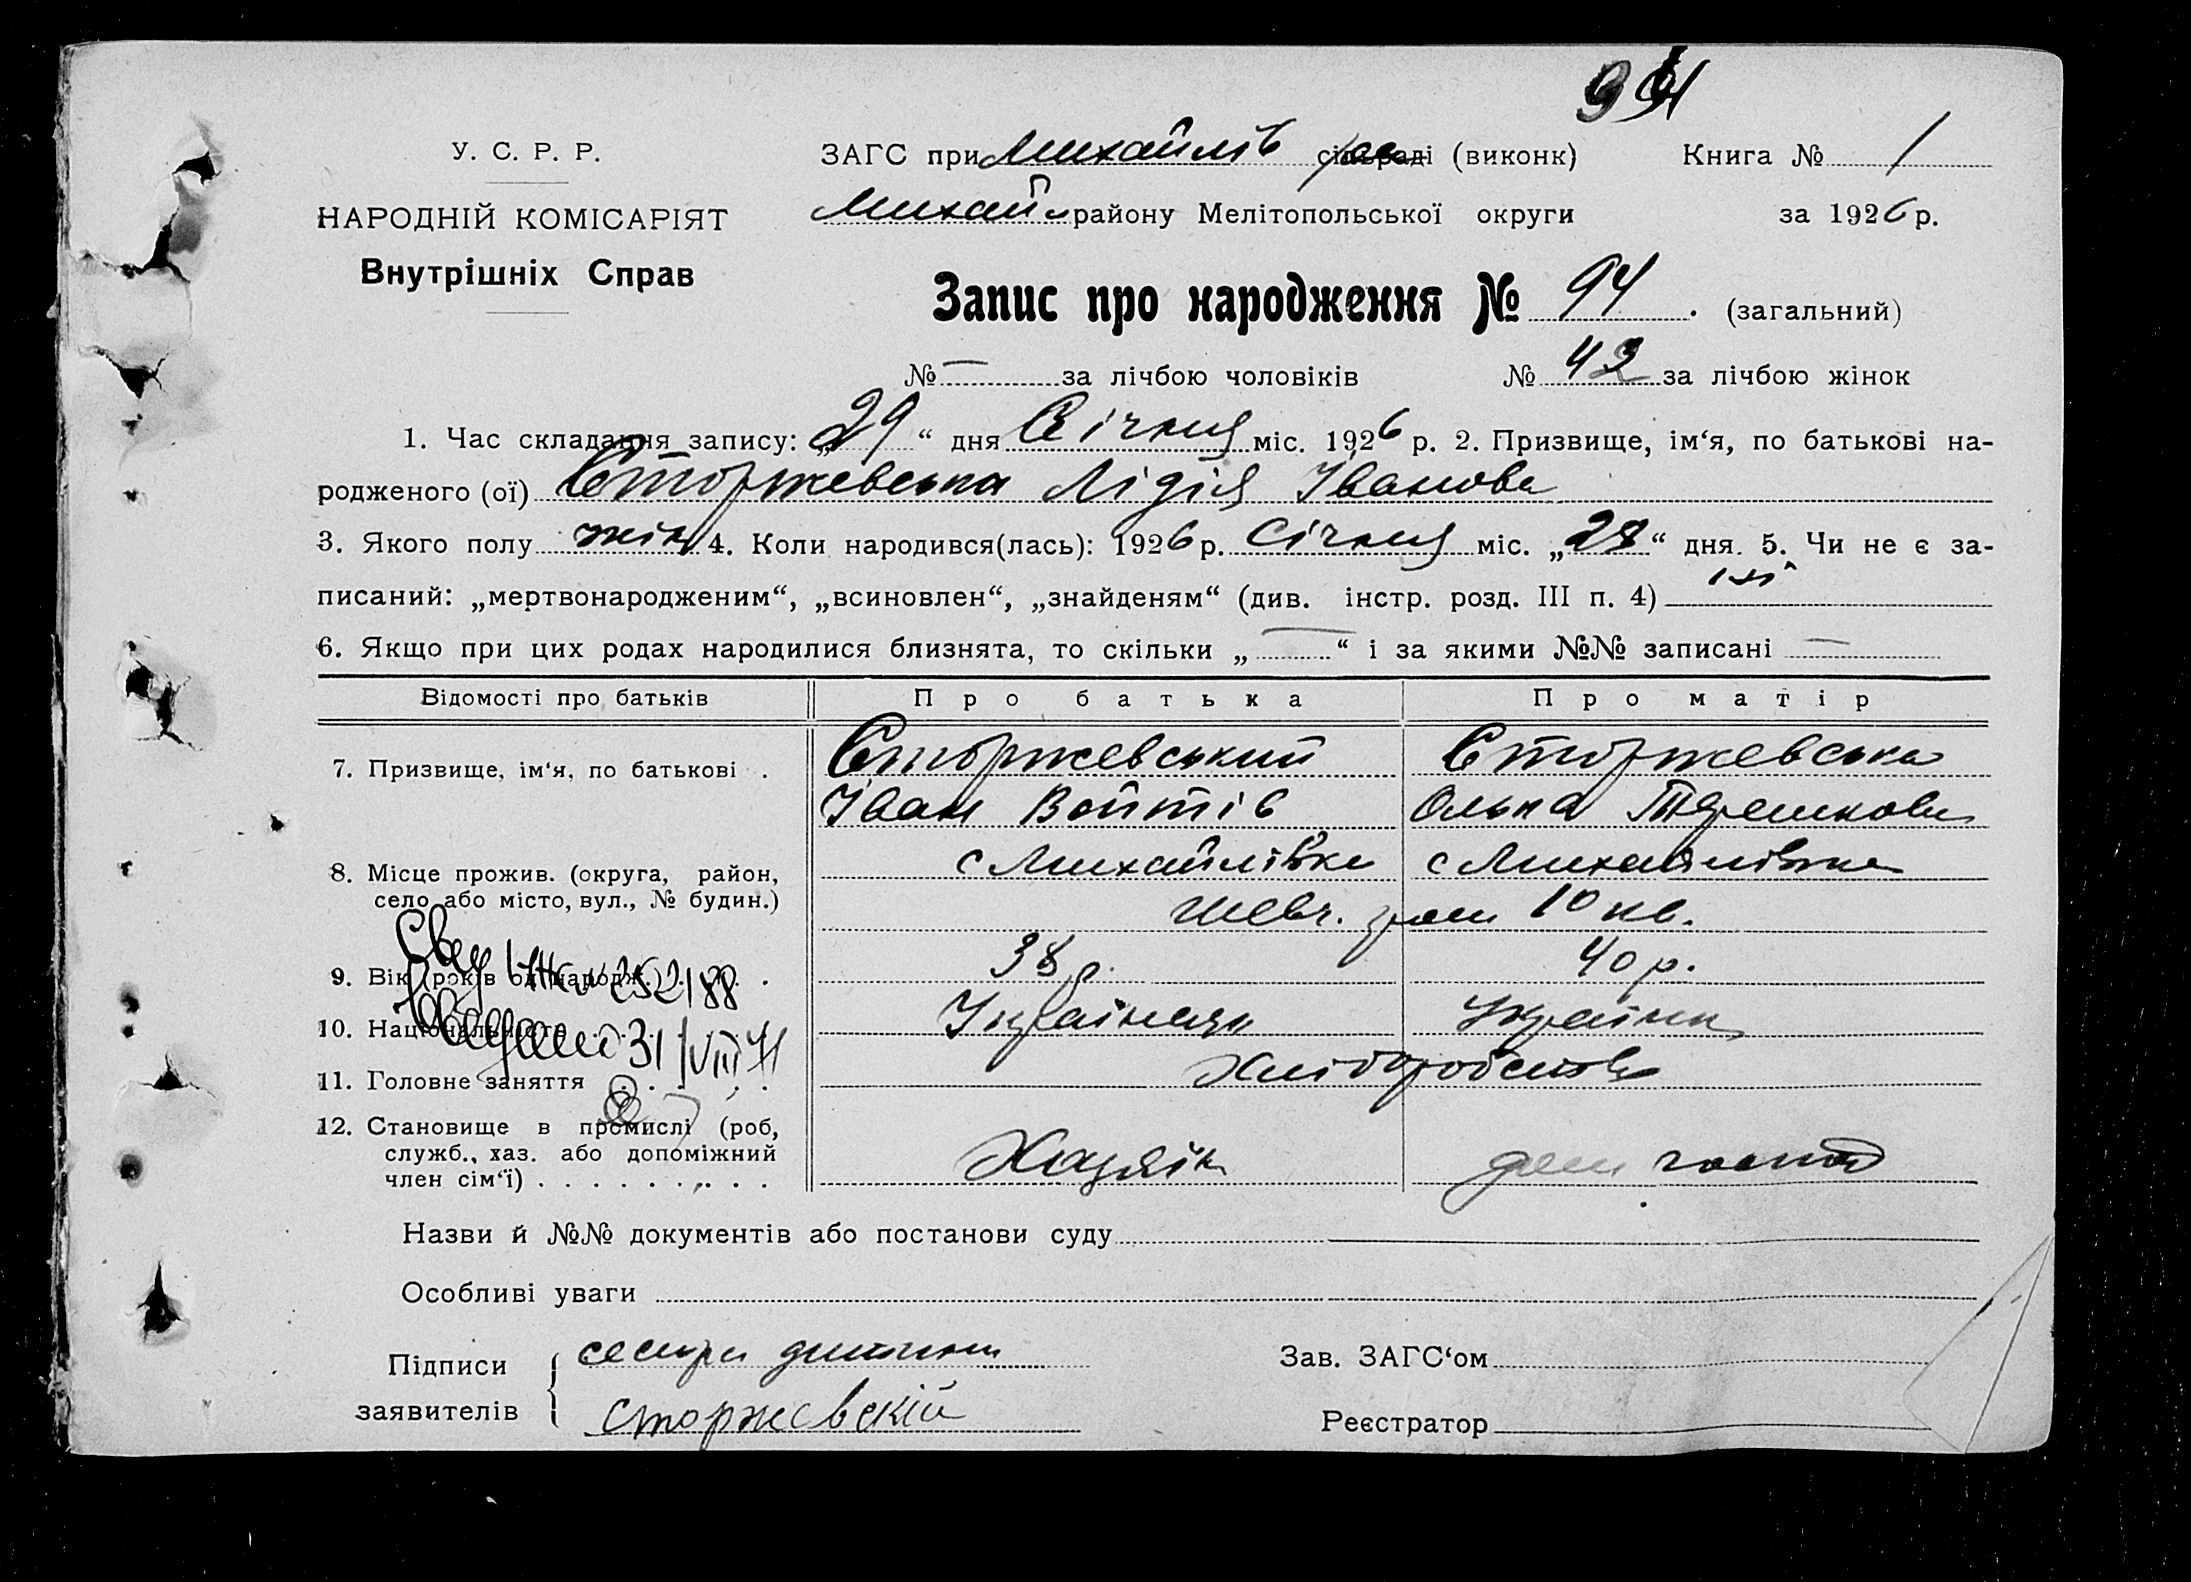 94
У. С. Р. Р.
НАРОДНІЙ КОМІСАРІЯТ
Внутрішніх Справ
ЗАГС при Михайлів сільраді (виконк) Книга № 1
Михайл району Мелітопольської округи за 1926 р.
Запис про народження № 94. (загальний)
№ — за лічбою чоловіків № 42 за лічбою жінок
1. Час складання запису: „29“ дня Січня міс. 1926 р. 2. Призвище, ім‘я, по батькові на-
родженого (ої) Сторжевська Лідія Іванова
3. Якого полу жін 4. Коли народився(лась): 1926 р. Січня міс. „28“ дня. 5. Чи не є за-
писаний: „мертвонародженим“, „всиновлен“, „знайденям“ (див. інстр. розд. III п. 4) ні
6. Якщо при цих родах народилися близнята, то скільки „—“ і за якими №№ записані —
Відомості про батьків Про батька Про матір
7. Призвище, ім‘я, по батькові . Сторжевський Сторжевська
Іван Войтів Ольга Терешкова
8. Місце прожив. (округа, район, с Михайлівка с Михайлівка
село або місто, вул., № будин.) Шевч. гром 10 кв.
9. Вік (років од народж.) . . . 38 р. 40 р.
10. Національність Українец Українка
11. Головне заняття . . . . Хліборобство
12. Становище в промислі (роб,
служб., хаз. або допоміжний Хазяїн дом господ
член сім‘ї) . . . . . . . . . .
31/VIII 71
Назви й №№ документів або постанови суду
Особливі уваги
Підписи сестра дитини Зав. ЗАГС‘ом
заявителів Сторжевскій Реєстратор